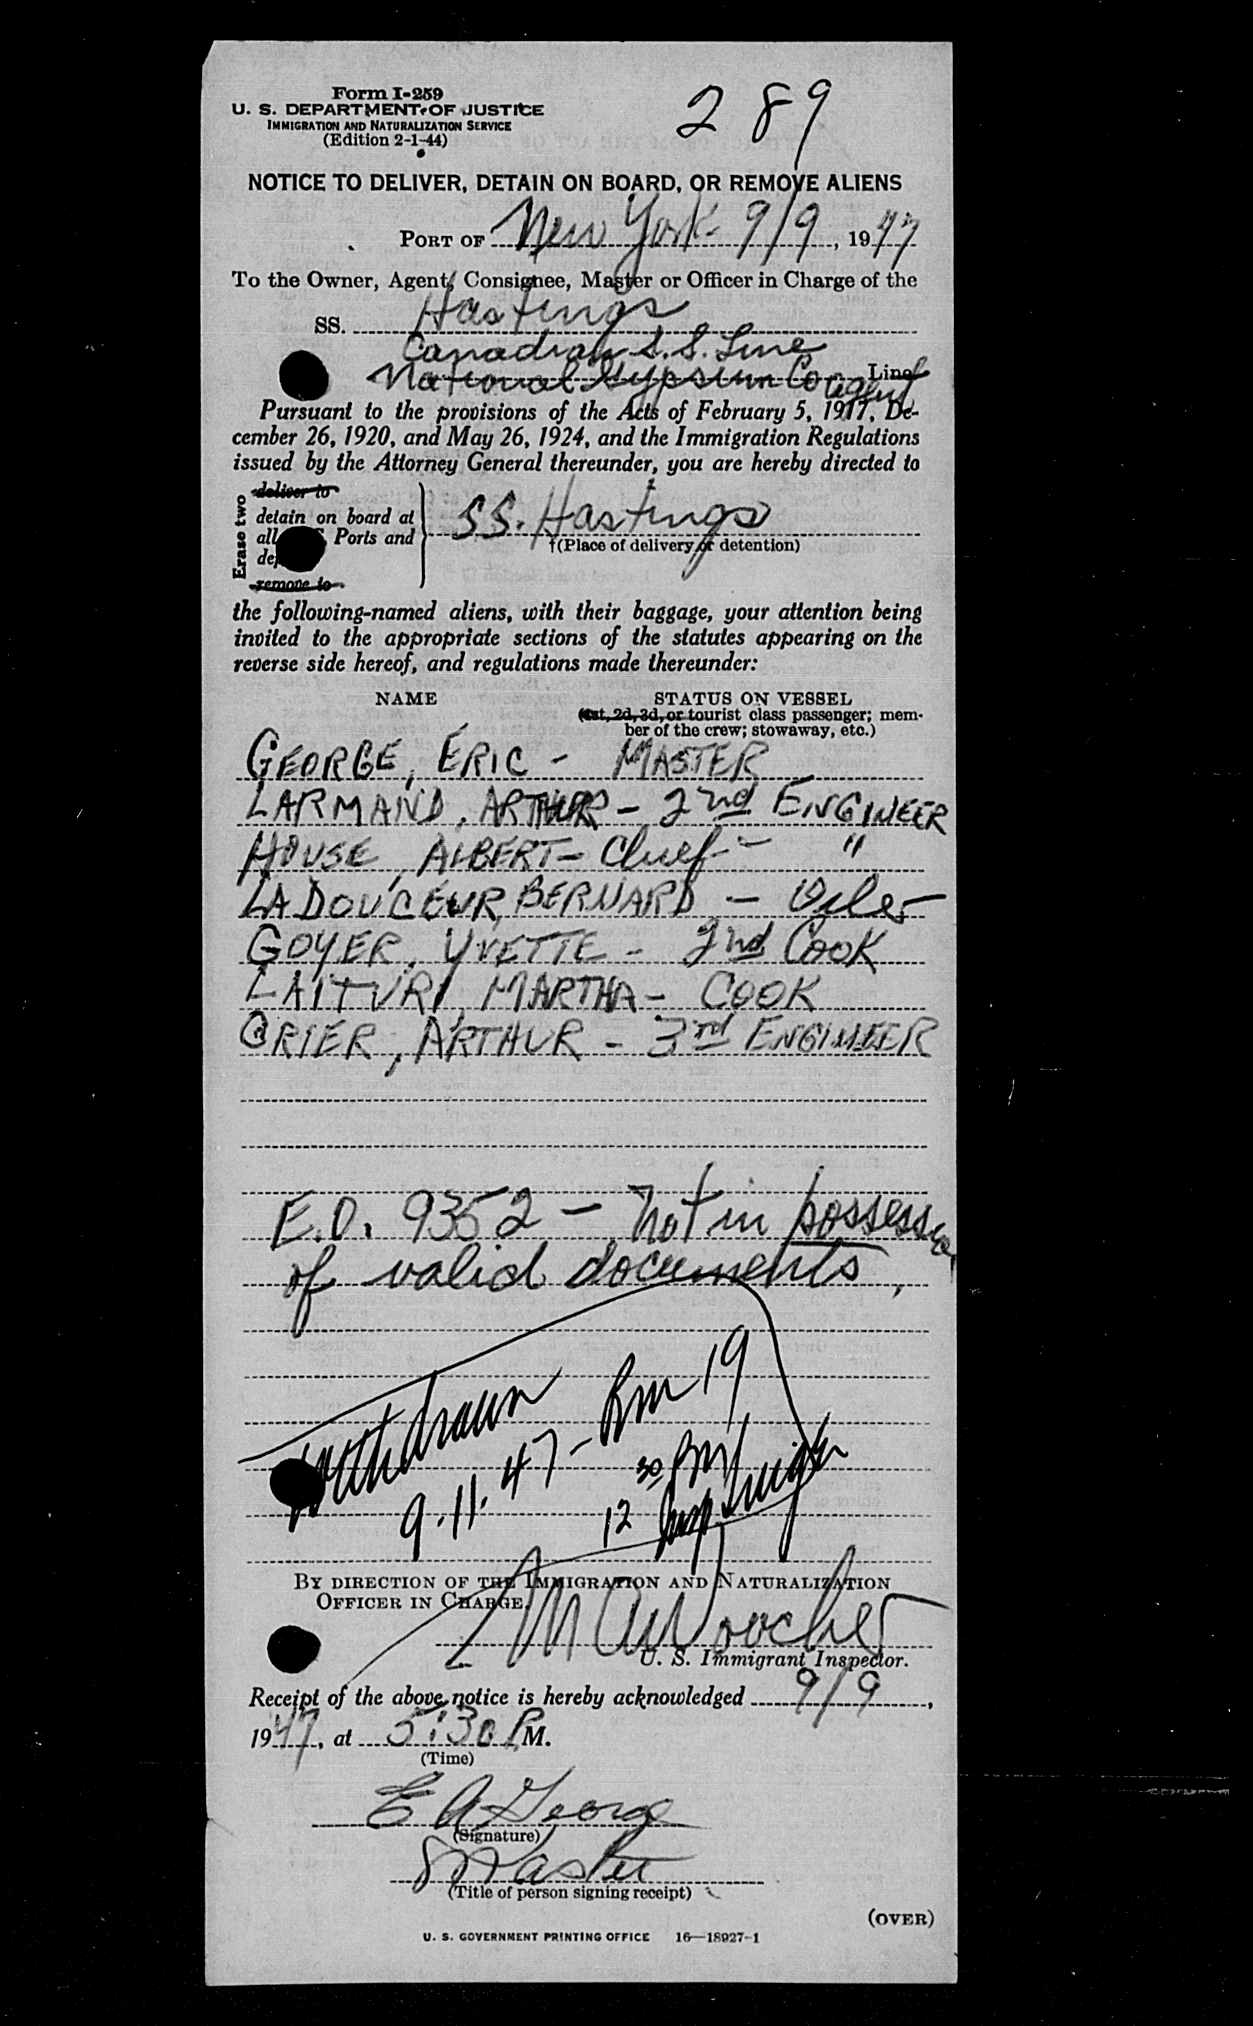 Form I-259
289
U. S. DEPARTMENT OF JUSTICE
IMMIGRATION AND NATURALIZATION SERVICE
(Edition 2-1-44)
NOTICE TO DELIVER, DETAIN ON BOARD, OR REMOVE ALIENS
PORT OF New York 9/9, 1947
To the Owner, Agent, Consignee, Master or Officer in Charge of the
SS. Hastings
Canadian S.S. Line
National Gypsum Co agent Line
Pursuant to the provisions of the Acts of February 5, 1917, De-
cember 26, 1920, and May 26, 1924, and the Immigration Regulations
issued by the Attorney General thereunder, you are hereby directed to
Erase two
deliver to
detain on board at
all Ports and
remove to
SS. Hastings
†(Place of delivery or detention)
the following-named aliens, with their baggage, your attention being
invited to the appropriate sections of the statutes appearing on the
reverse side hereof, and regulations made thereunder:
NAME STATUS ON VESSEL
(1st, 2d, 3d, or tourist class passenger; mem-
ber of the crew; stowaway, etc.)
GEORGE, ERIC - MASTER
LARMAND, ARTHUR - 2nd ENGINEER
HOUSE, ALBERT - Chief - "
LADOUCEUR, BERNARD - Oiler
GOYER, YVETTE - 2nd COOK
LAITURI, MARTHA - COOK
GRIER, ARTHUR - 3rd ENGINEER
E.O. 9352 - not in possession
of valid documents,
Withdrawn
9.11.47 - Rm 19
12 30 PM
BY DIRECTION OF THE IMMIGRATION AND NATURALIZATION
OFFICER IN CHARGE.
U. S. Immigrant Inspector.
Receipt of the above notice is hereby acknowledged 9/9,
1947, at 5:30 P M.
(Time)
E A George
(Signature)
Master
(Title of person signing receipt)
(OVER)
U. S. GOVERNMENT PRINTING OFFICE 16—18927-1